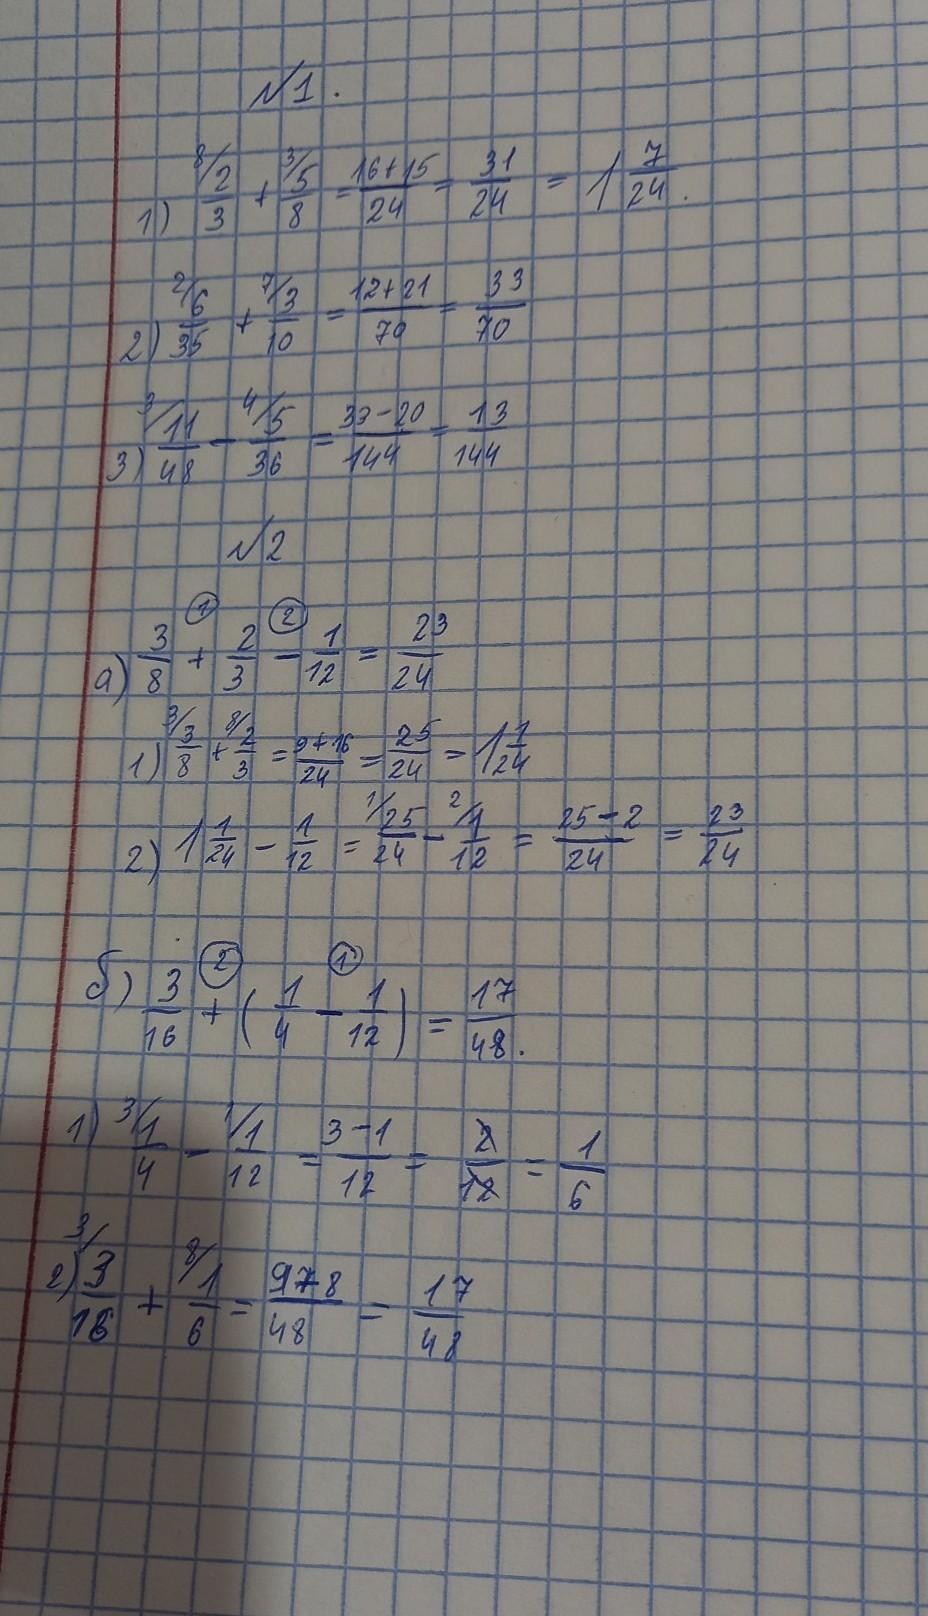 №1.
1) 8/ 2/3 + 3/ 5/8 = 16+15/24 = 31/24 = 1 7/24.
2) 2/ 6/35 + 7/ 3/10 = 12+21/70 = 33/70
3) 3/ 11/48 - 4/ 5/36 = 33-20/144 = 13/144
№2
① ②
а) 3/8 + 2/3 - 1/12 = 23/24
1) 3/ 3/8 + 8/ 2/3 = 9+16/24 = 25/24 = 1 1/24
2) 1 1/24 - 1/12 = 1/ 25/24 - 2/ 1/12 = 25-2/24 = 23/24
② ①
б) 3/16 + (1/4 - 1/12) = 17/48.
1) 3/ 1/4 - 1/ 1/12 = 3-1/12 = 2/12 = 1/6
2) 3/ 3/16 + 8/ 1/6 = 9+8/48 = 17/48